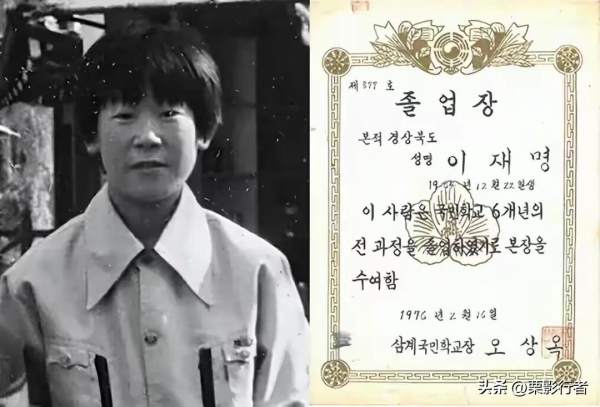 제 877 호
졸업장
본적 경상북도
성명 이재명
1964년 12월 22일생
이 사람은 국민학교 6개년의
전 과정을 졸업하였기로 본장을
수여함
1976년 2월 16일
삼계국민학교장 오상옥
头条 @栗影行者